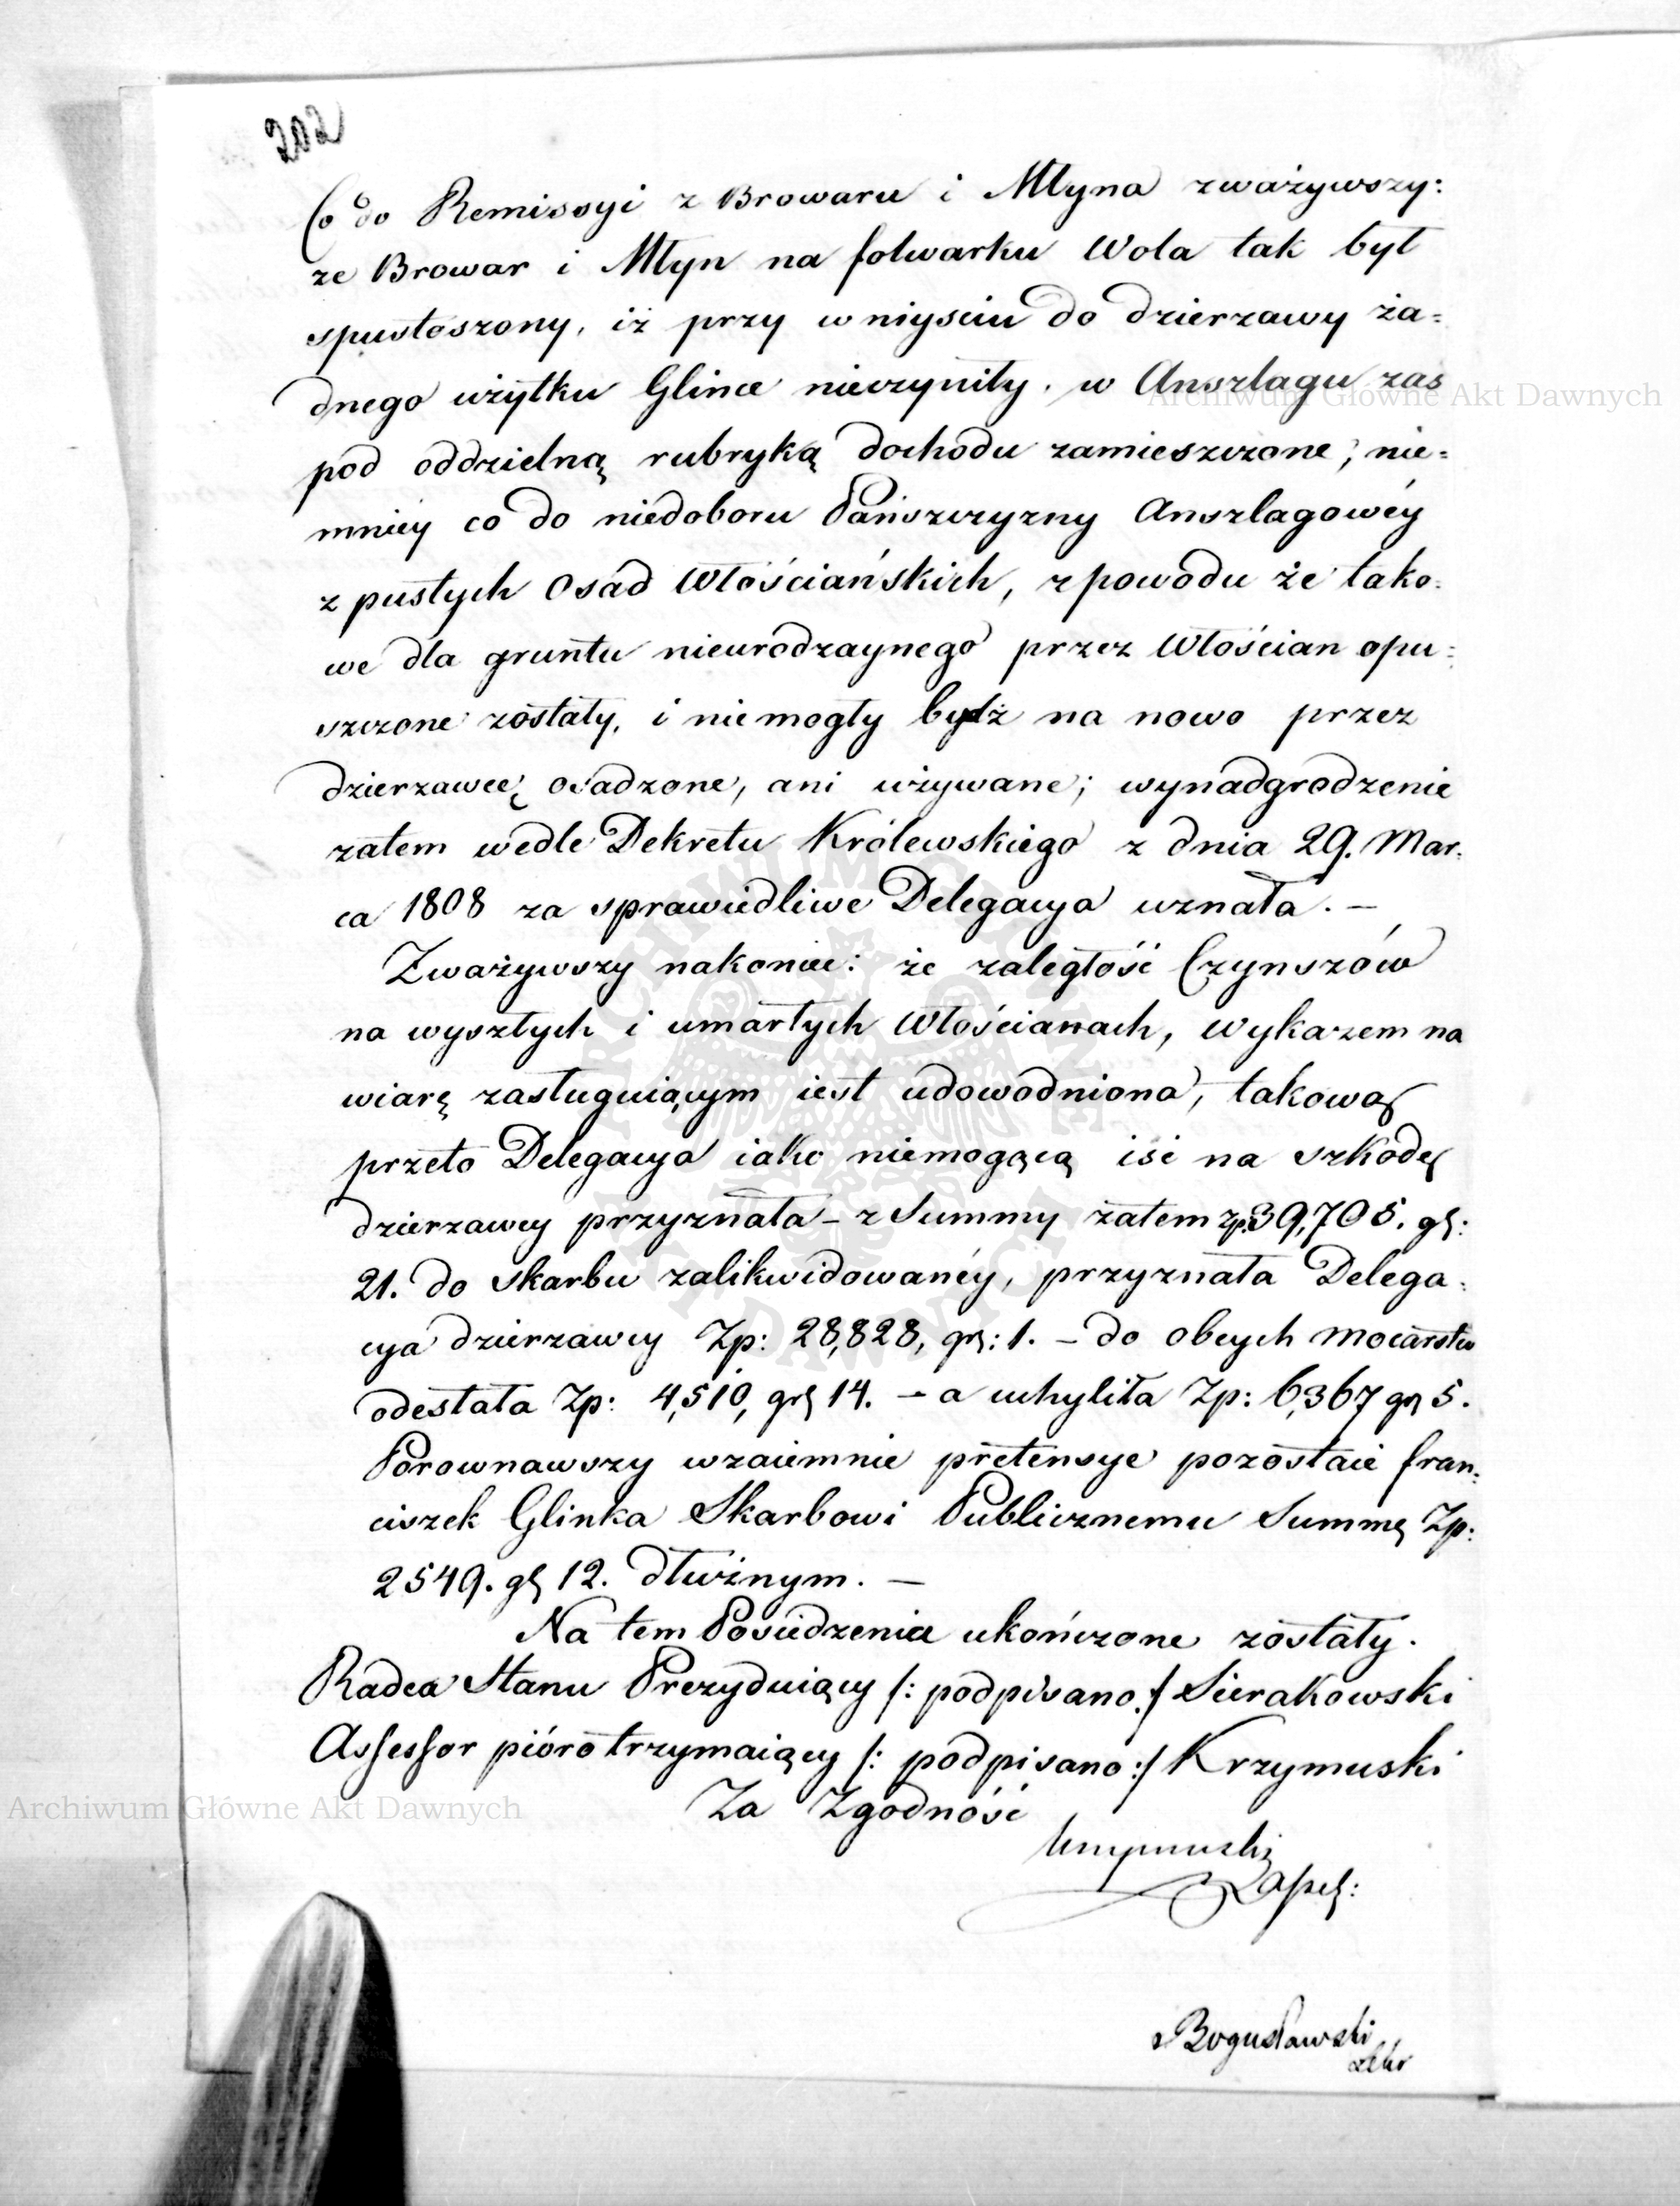 202
Co do Remissyi z Browaru i Młyna zważywszy:
ze Browar i Młyn na folwarku Wola tak był
spustoszony, iż przy wniyściu do dzierzawy ża=
dnego użytku Glince nieczyniły, w Anszlagu zas
pod oddzielną rubryką dochodu zamieszczone, nie=
mniey co do niedoboru Pańszczyzny Anszlagowéy
z pustych Osad Włościańskich, z powodu że tako=
we dla gruntu nieurodzaynego przez Włościan opu=
szczone zostały, i niemogły bydź na nowo przez
dzierzawcę osadzone, ani używane; wynadgrodzenie
zatem wedle Dekretu Królewskiego z dnia 29. Mar=
ca 1808 za sprawiedliwe Delegacya uznała. –
Zważywszy nakoniec: że zaległość Czynszów
na wyszłych i umarłych Włościanach, wykazem na
wiarę zasługuiącym iest udowodniona, takową
przeto Delegacya iako niemogącą iść na szkodę
dzierzawcy przyznała – z Summy zatem zp. 39,705. gr:
21. do skarbu zalikwidowanéy, przyznała Delega=
cya dzierzawcy Zp: 28,828, gr: 1. – do obcych mocarstw
odesłała Zp: 4,510, gr 14. – a uchyliła Zp: 6,367 gr 5.
Porownawszy wzaiemnie pretensye pozostaie fran=
ciszek Glinka Skarbowi Publicznemu Summę Zp:
2549. gr 12. dłużnym. –
Na tem Posiedzenia ukończone zostały.
Radca Stanu Prezyduiący /: podpisano :/ Sierakowski
Assessor pióro trzymaiący /: podpisano :/ Krzymuski
Za Zgodność
Krzymuski
Bogusławski
Archiwum Główne Akt Dawnych
Archiwum Główne Akt Dawnych
ARCHIWUM GŁÓWNE AKT DAWNYCH